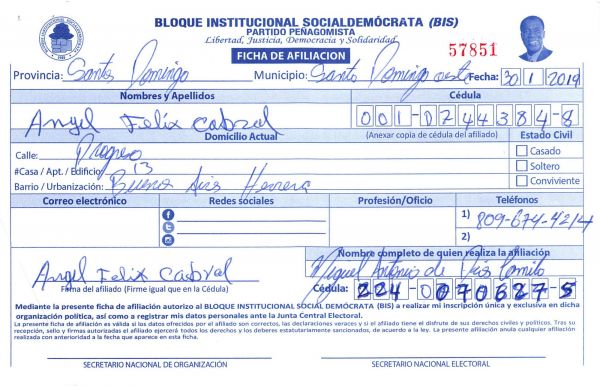 BLOQUE INSTITUCIONAL SOCIALDEMÓCRATA (BIS)
PARTIDO PEÑAGOMISTA
Libertad, Justicia, Democracia y Solidaridad
FICHA DE AFILIACION
57851
Provincia: Santo Domingo Municipio: Santo Domingo oeste Fecha: 30/1/2019
Nombres y Apellidos Cédula
Angel Felix Cabral 001-0244384-8
Domicilio Actual (Anexar copia de cédula del afiliado) Estado Civil
Calle: Progreso Casado
#Casa / Apt. / Edificio 13 Soltero
Barrio / Urbanización: Buenos Aires Herrera Conviviente
Correo electrónico Redes sociales Profesión/Oficio Teléfonos
1) 809-674-4214
2)
Nombre completo de quien realiza la afiliación
Angel Felix Cabral Miguel Antonio de
Firma del afiliado (Firme igual que en la Cédula) Cédula: 224-0070627-5
Mediante la presente ficha de afiliación autorizo al BLOQUE INSTITUCIONAL SOCIAL DEMÓCRATA (BIS) a realizar mi inscripción única y exclusiva en dicha
organización política, así como a registrar mis datos personales ante la Junta Central Electoral.
La presente ficha de afiliación es válida si los datos ofrecidos por el afiliado son correctos, las declaraciones veraces y si el afiliado tiene el disfrute de sus derechos civiles y políticos. Tras su
recepción, sello y firmas autorizadas el afiliado ejercerá todos los derechos y los deberes estatutariamente sancionados, de acuerdo a la ley. La presente afiliación anula cualquier afiliación
realizada con anterioridad a la fecha que aparece en esta ficha.
SECRETARIO NACIONAL DE ORGANIZACIÓN SECRETARIO NACIONAL ELECTORAL